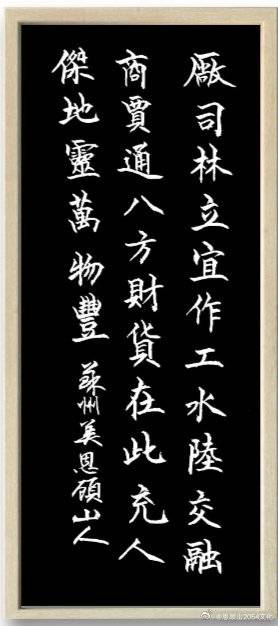 厰司林立宜作工水陸交融
商賈通八方財貨在此充人
傑地靈萬物豐 蘇州美恩領山人